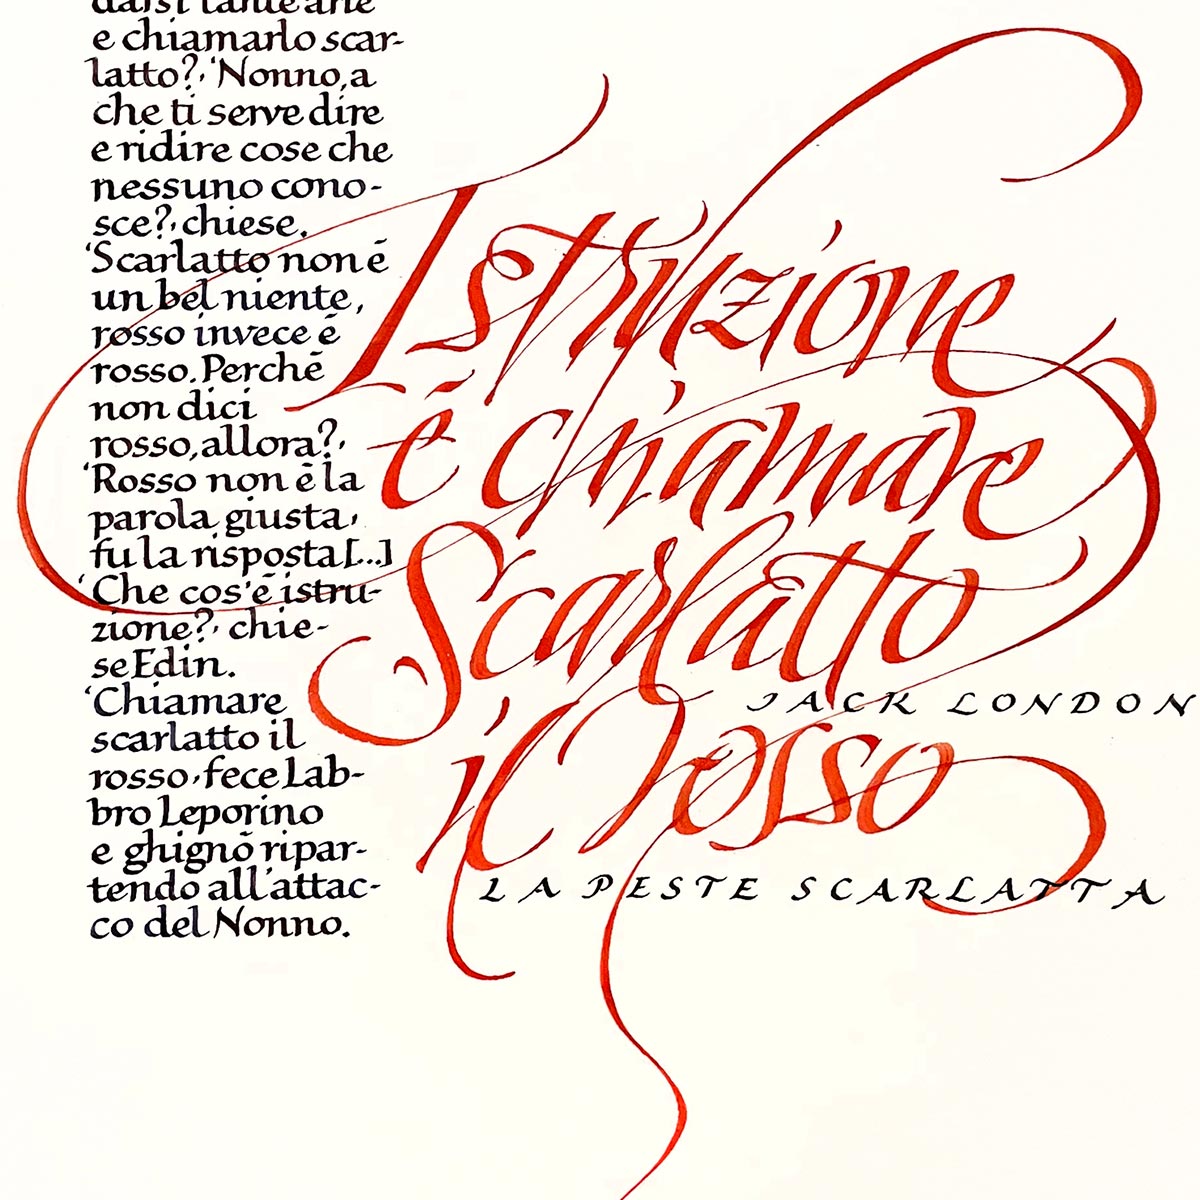 darsi tante arie
e chiamarlo scar-
latto?, 'Nonno, a
che ti serve dire
e ridire cose che
nessuno cono-
sce?, chiese.
'Scarlatto non ē
un bel niente,
rosso invece ē
rosso. Perchē
non dici
rosso, allora?,
'Rosso non ē la
parola giusta,
fu la risposta[...]
'Che cos'ē istru-
zione?, chie-
se Edin.
'Chiamare
scarlatto il
rosso, fece Lab-
bro Leporino
e ghignō ripar-
tendo all'attac-
co del Nonno.
Istruzione
ē chiamare
Scarlatto
il rosso
JACK LONDON
LA PESTE SCARLATTA